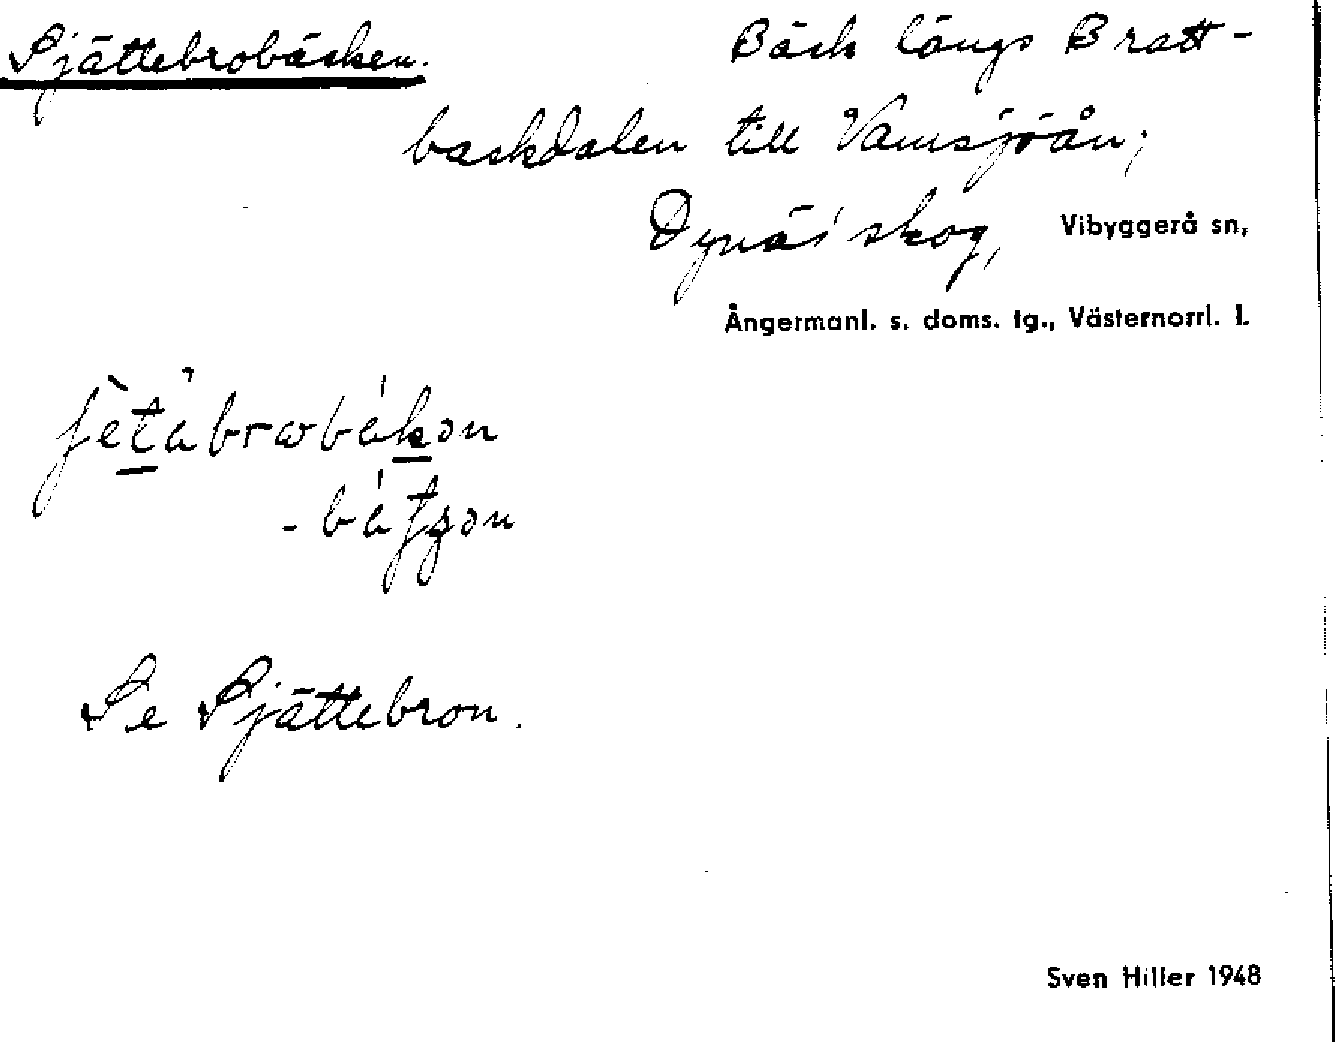 Sjättebrobäcken.
Bäck längs Bratt-
backdalen till Vamsjöån;
Dynäs' skog, Vibyggerå sn,
Ångermanl. s. doms. tg., Västernorrl. l.
Se Sjättebron.
Sven Hiller 1948